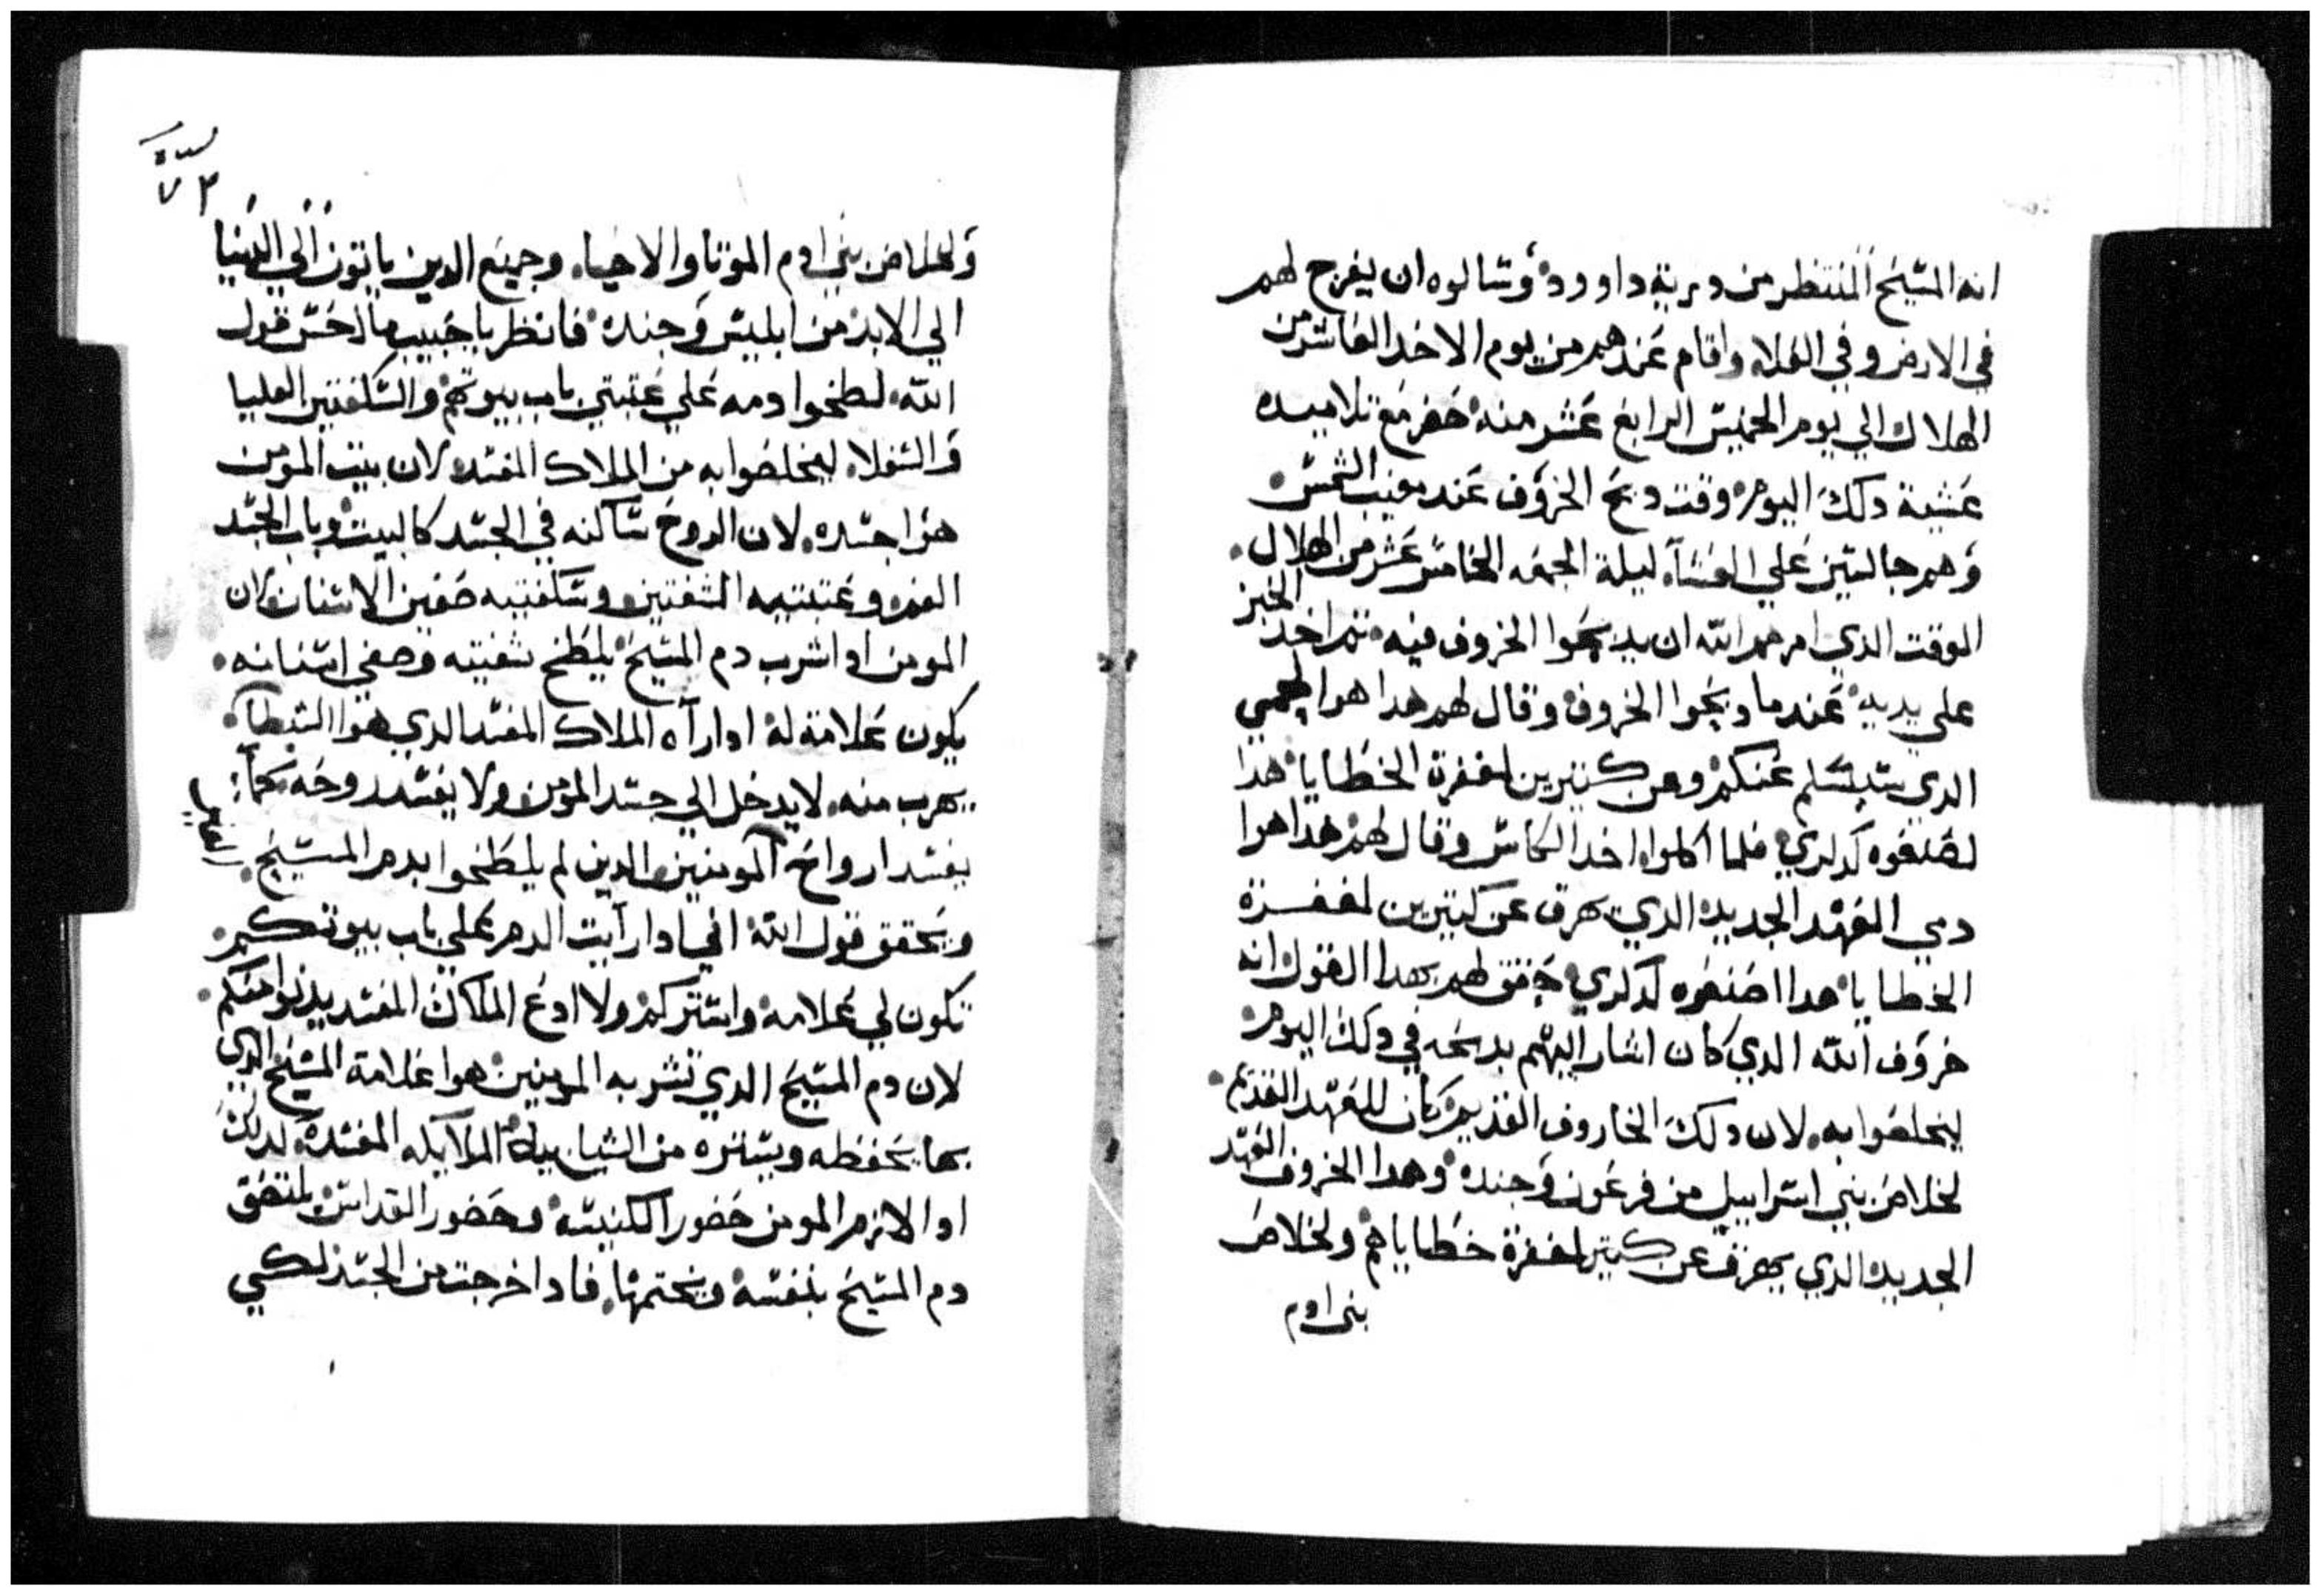 انه المسيح المنتظر من درية داوود وسالوه ان يفرج لهم
في الارض وفي الفلاه واقام عندهم من يوم الاحد العاشر من
الهلال الي يوم الخميس الرابع عشر منه حضر مع تلاميده
عشية دلك اليوم وقت دبح الخروف عند مغيب الشمس
وهم جالسين علي العشاء ليلة الجمعه الخامس عشر من الهلال
الوقت الدي امرهم الله ان يدبحوا الخروف فيه تم اخد الخبز
علي يديه عندما دبحوا الخروف وقال لهم هدا هوا لحمي
الدي يسلم عنكم وعن كتيرين لمغفرة الخطايا هدا
اصنعوه لدكري فلما اكلوا اخد الكاس وقال لهم هدا هوا
دمي العهد الجديد الدي يهرق عن كتيرين لمغفرة
الخطايا هدا اصنعوه لدكري حقق لهم بهدا القول انه
خروف الله الدي كان اشار اليهم بدبحه في دلك اليوم
ليخلصوا به لان دلك الخاروف القديم كان للعهد القديم
لخلاص بني اسراييل من فرعون وجنده وهدا الخروف العهد
الجديد الدي يهرق عن كتير لمغفرة خطاياهم ولخلاص
بنى ادم
٧٢
ولخلاص بني ادم الموتا والاحياء وجميع الدين ياتون الي الدنيا
الي الابد من ابليس وجنده فانظر يا حبيب ما احسن قول
الله لطخوا دمه علي عتبتي باب بيوتهم والسكفتين العليا
والسفلا ليخلصوا به من الملاك المفسد لان بيت المومن
هوا جسده لان الروح ساكنه في الجسد كالبيت وباب الجسد
الفم وعتبتيه الشفتين وسكفتيه صفين الاسنان لان
المومن ادا شرب دم المسيح يلطخ شفتيه وصفي اسنانه
يكون علامة له ادا رآه الملاك المفسد الدي هوا الشيطان
يهرب منه لا يدخل الي جسد المومن ولا يفسد روحه كما
يفسد ارواح المومنين الدين لم يلطخوا بدم المسيح
ويحقق قول الله اني ادا رايت الدم علي باب بيوتكم
تكون لي علامة واستركم ولا ادع الملاك المفسد يدنوا منكم
لان دم المسيح الدي تشربه المومنين هوا علامة المسيح الدي
بها يحفظه ويستره من الشياطين الملايكه المفسده لدلك
ادا لازم المومن حضور الكنيسه وحضور القداس يلتصق
دم المسيح بنفسه ويختمها فادا خرجت من الجسد لكي